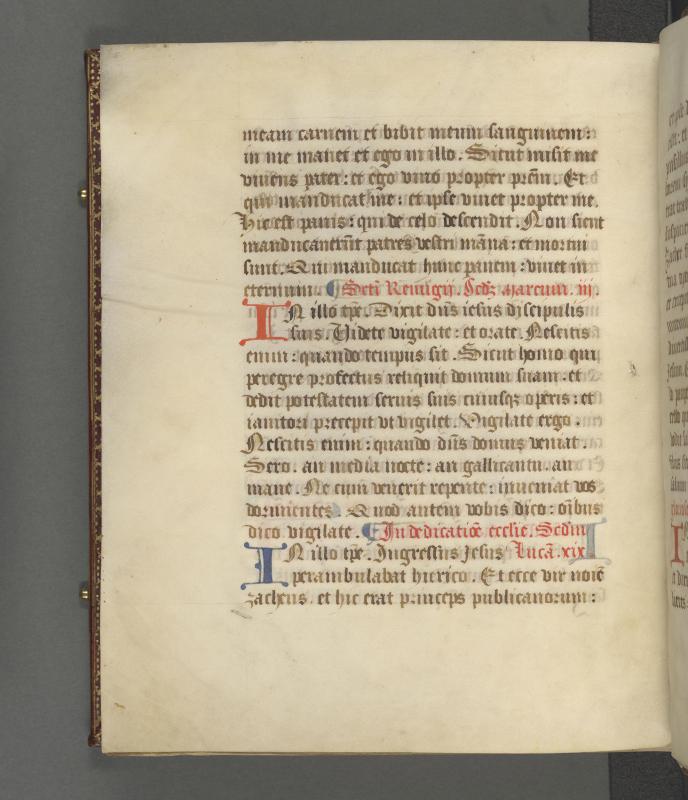 meam carnem et bibit meum sanguinem:
in me manet et ego in illo. Sicut misit me
viuens pater: et ego viuo propter prem. Et
qui manducat me: et ipse viuet propter me.
Hic est panis: qui de celo descendit. Non sicut
manducauerunt patres vestri manna: et mortui
sunt. Qui manducat hunc panem: viuet in
eternum. Scti Remigij. Scdm Marcum. iii.
IN illo tpe. Dixit dns iesus discipulis
suis. Videte vigilate: et orate. Nescitis
enim: quando tempus sit. Sicut homo qui
peregre profectus reliquit domum suam: et
dedit potestatem seruis suis cuiusq operis: et
ianitori precepit vt vigilet. Vigilate ergo.
Nescitis enim: quando dns domus veniat.
Sero. an media nocte: an gallicantu. an
mane. Ne cum venerit repente: inueniat vos
dormientes. Quod autem vobis dico: oibus
dico vigilate. In dedicatioe ecclie. Scdm
IN illo tpe. Ingressus Jesus Lucā. xix
perambulabat hierico. Et ecce vir noiē
zacheus. et hic erat princeps publicanorum: